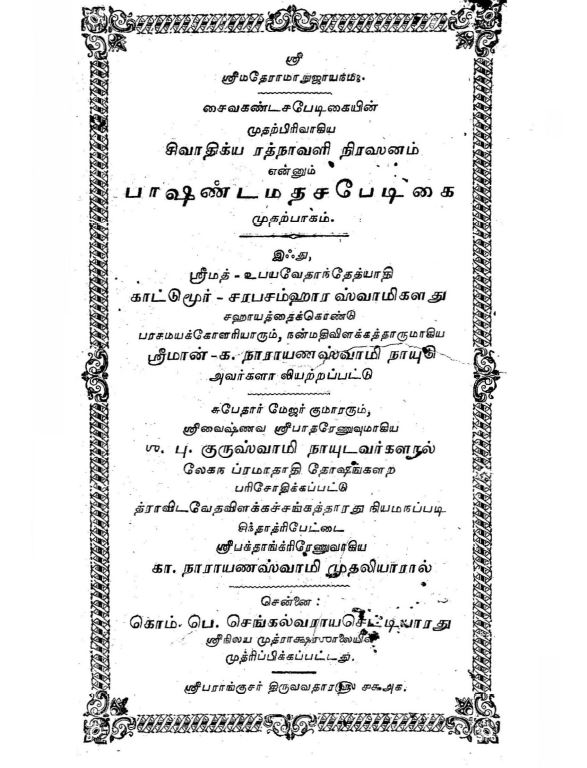 ஸ்ரீ
ஸ்ரீமதேராமாநுஜாயநம:.
சைவகண்டசபேடிகையின்
முதற்பிரிவாகிய
சிவாதிக்ய ரத்நாவளி நிரஸனம்
என்னும்
பாஷண்டமதசபேடிகை
முதற்பாகம்.
இஃது,
ஸ்ரீமத் - உபயவேதாந்தேத்யாதி
காட்டுமூர் - சரபசம்ஹார ஸ்வாமிகளது
சஹாயத்தைக்கொண்டு
பரசமயக்கோளரியாரும், நன்மதிவிளக்கத்தாருமாகிய
ஸ்ரீமான் - க. நாராயணஸ்வாமி நாயுடு
அவர்களா லியற்றப்பட்டு
சுபேதார் மேஜர் குமாரரும்,
ஸ்ரீவைஷ்ணவ ஸ்ரீபாதரேணுவுமாகிய
பு. குருஸ்வாமி நாயுடவர்களால்
லேகந ப்ரமாதாதி தோஷங்களற
பரிசோதிக்கப்பட்டு
த்ராவிடவேதவிளக்கச்சங்கத்தாரது நியமநப்படி
சிந்தாத்ரிபேட்டை
ஸ்ரீபக்தாங்க்ரிரேணுவாகிய
கா. நாராயணஸ்வாமி முதலியாரால்
சென்னை :
கொம். பெ. செங்கல்வராயசெட்டியாரது
ஸ்ரீநிலய முத்ராக்ஷரஸாலையில்
முத்ரிப்பிக்கப்பட்டது.
ஸ்ரீபராங்குசர் திருவவதாரம்